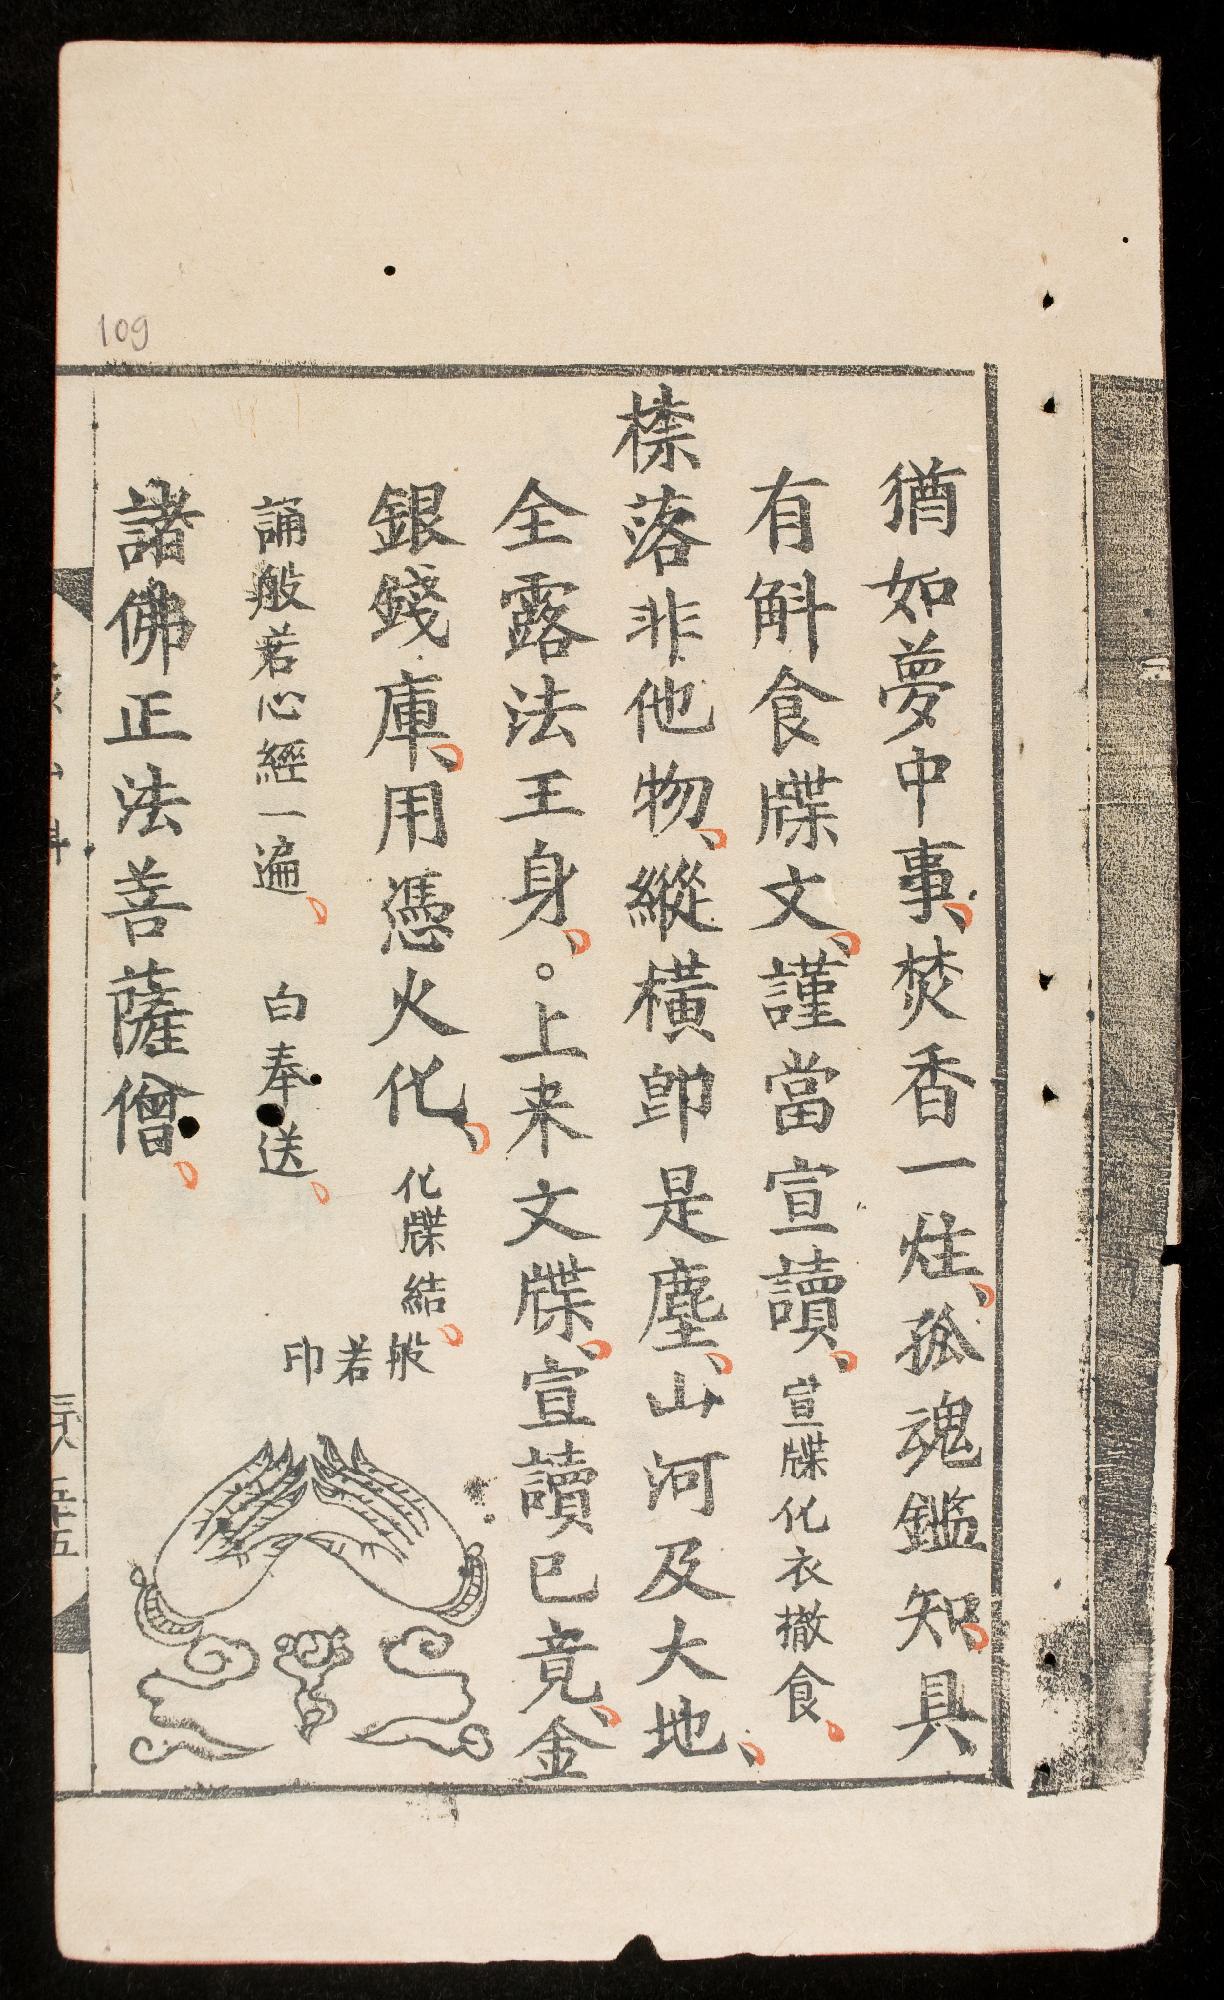 109
猶如夢中事、焚香一炷、孤魂鑑知、具
有斛食牒文、謹當宣讀、宣牒化衣撤食、
落非他物、縱橫卽是塵、山河及大地、
全露法王身、。上来文牒、宣讀已竟、金
銀錢庫、用憑火化、化牒結、
般若印
誦般若心經一遍、 白奉送、
諸佛正法菩薩僧、